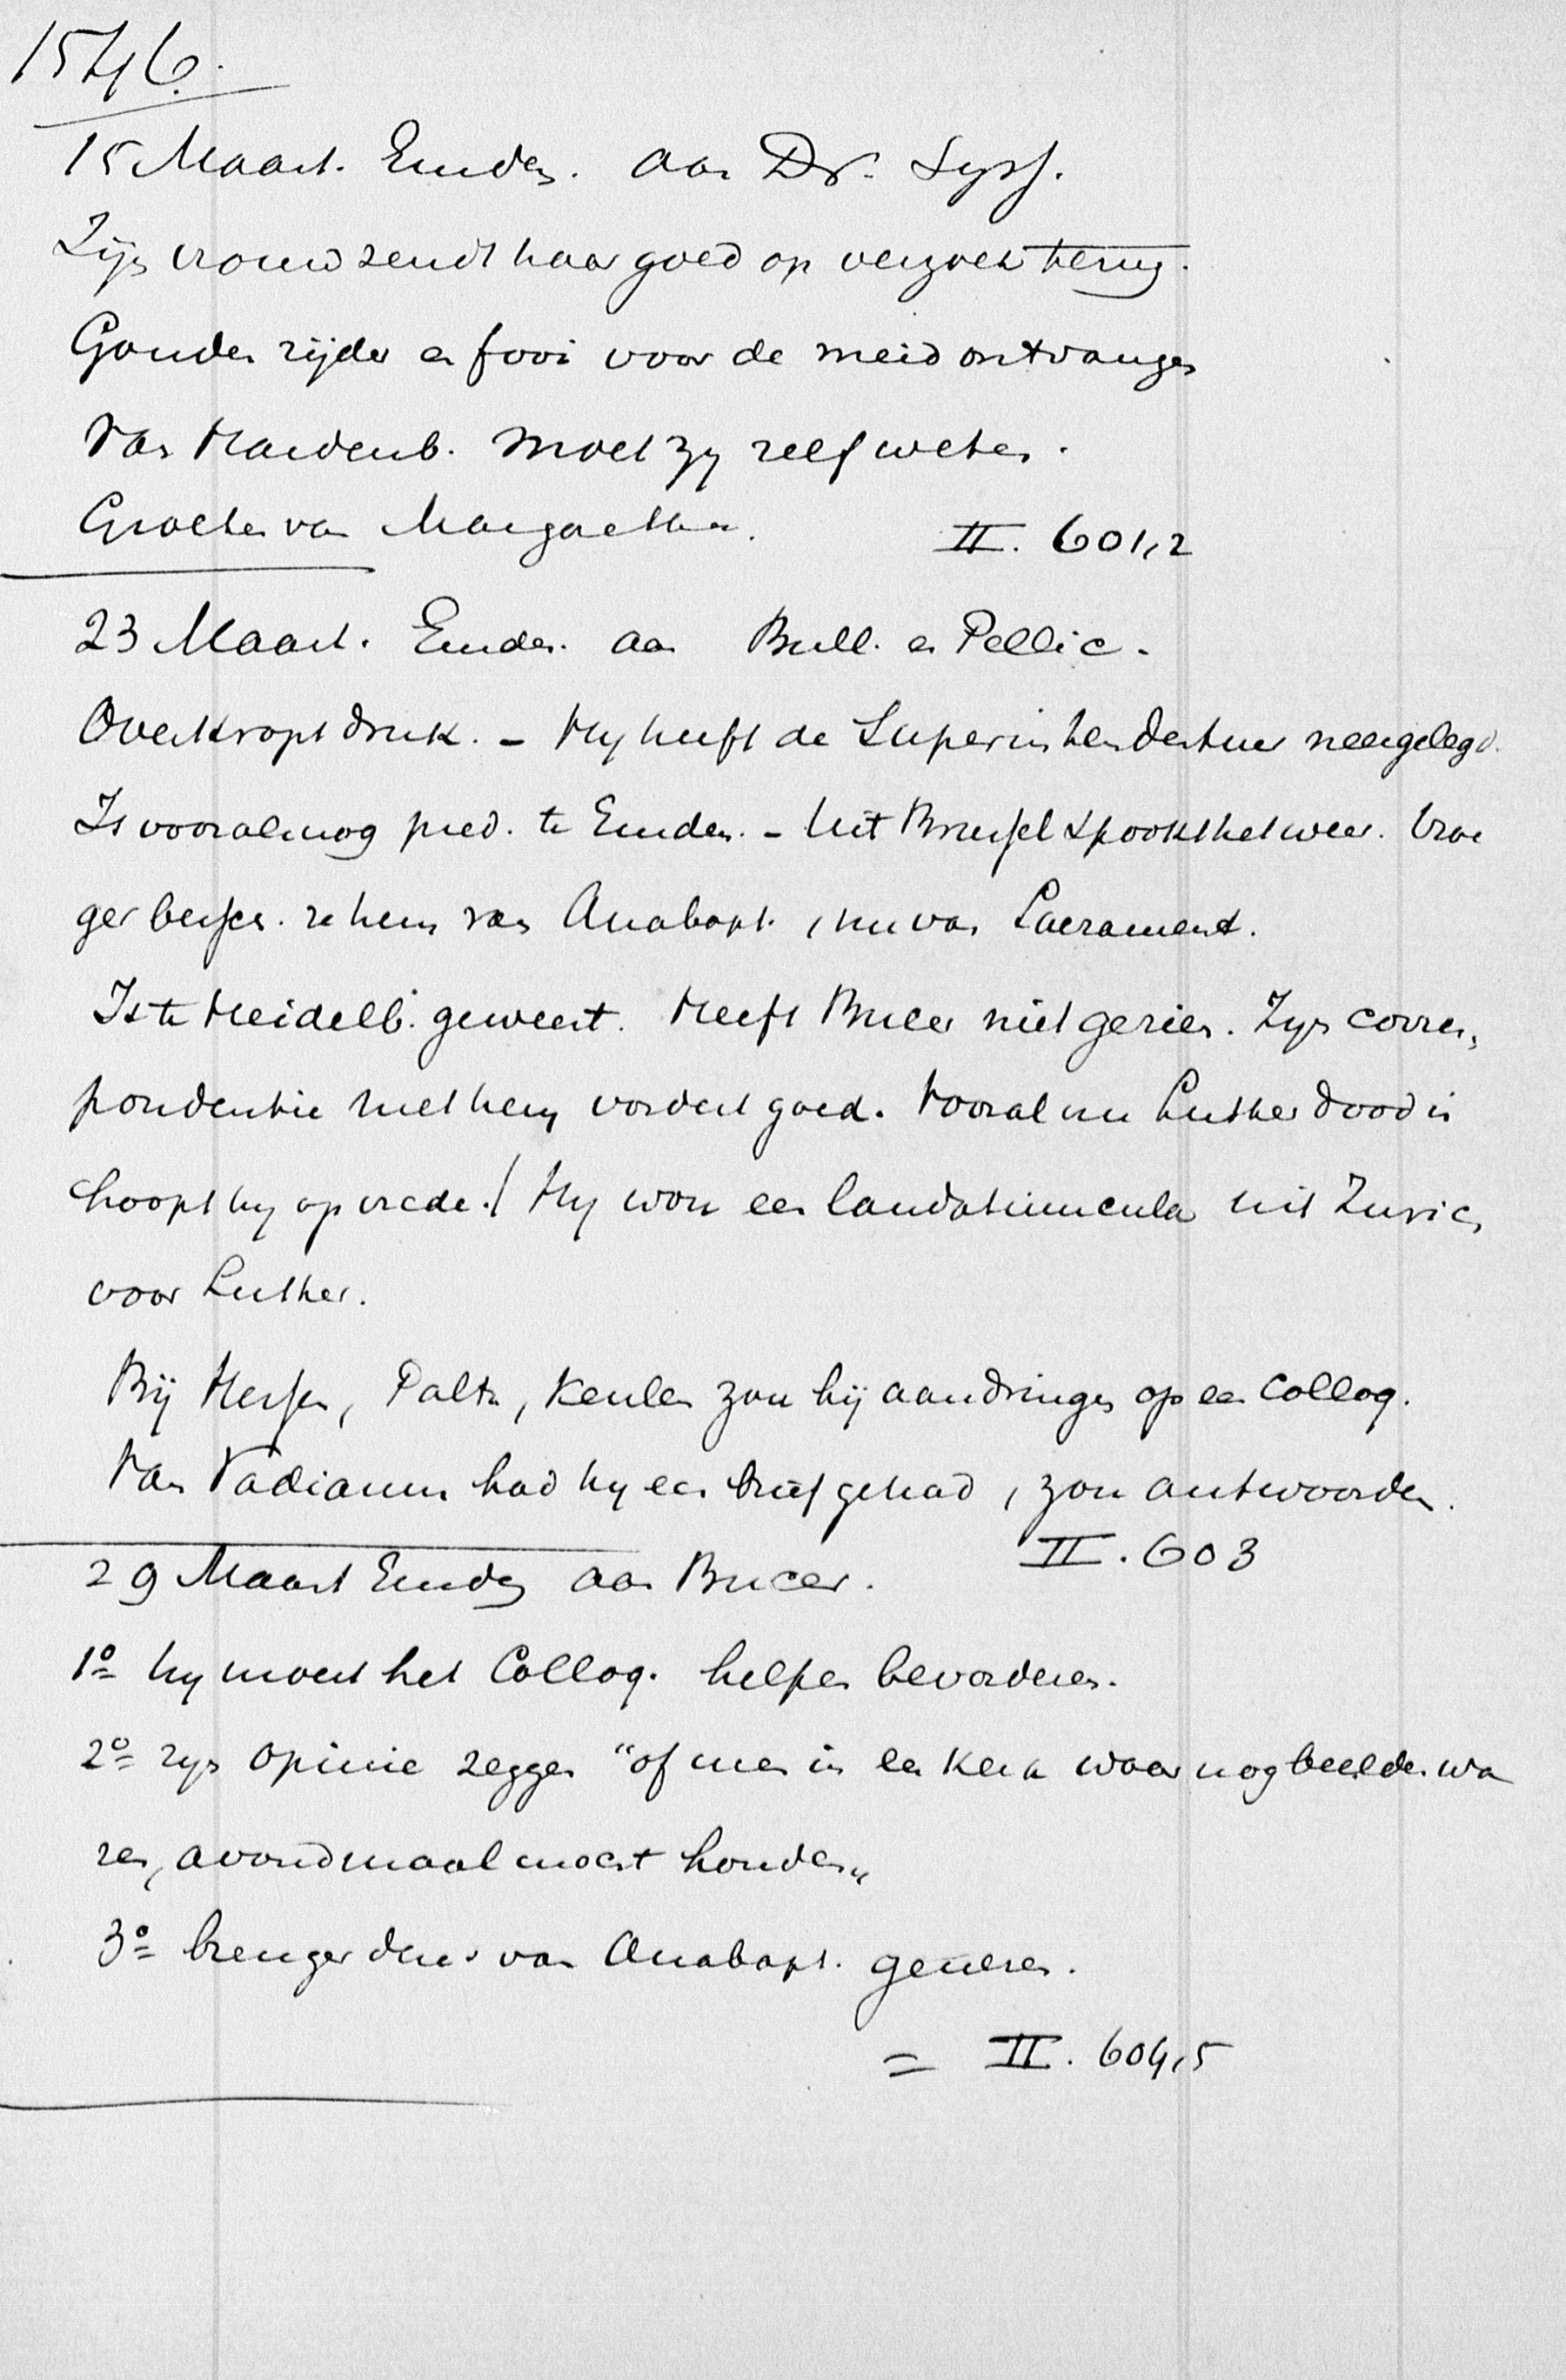 1546.
15 Maart. Emden. aan Dr. Syss.
Zijn vrouw zendt haar goed op verzoek terug.
Gouden rijder en fooi voor de meid ontvangen
Van Hardenb. moet zy zelf weten.
Groeten van Margaetha. II. 601,2
23 Maart. Emden. aan Bull. en Pellic.
Overkropt druk. - Hy heeft de Superintendentuur neergelegd.
Is vooralnog pred. te Emden. - Uit Brussel spookt het weer. Vroe
ger beschr. ze hem van Anabapt., nu van Sacrament.
Is te Heidelb. geweest. Heeft Bucer niet gezien. Zyn corres,
pondentie met hem vordert goed. Vooral nu Luther dood is
hoopt hy op vrede./ Hy wou een laudatiuncula uit Zurich
voor Luther.
Bij Hessen, Paltz, Keulen zou hij aandringen op een Colloq.
Van Vadianum had hy een brief gehad, zou antwoorden.
II. 603
29 Maart Emden aan Bucer.
1o hy moest het Colloq. helpen bevorderen.
2o zyn opinie zeggen "of men in een kerk waar nog beelden wa
ren, avondmaal moest houden„
3o brenger dezes van Anabapt. genezen.
= II. 604,5